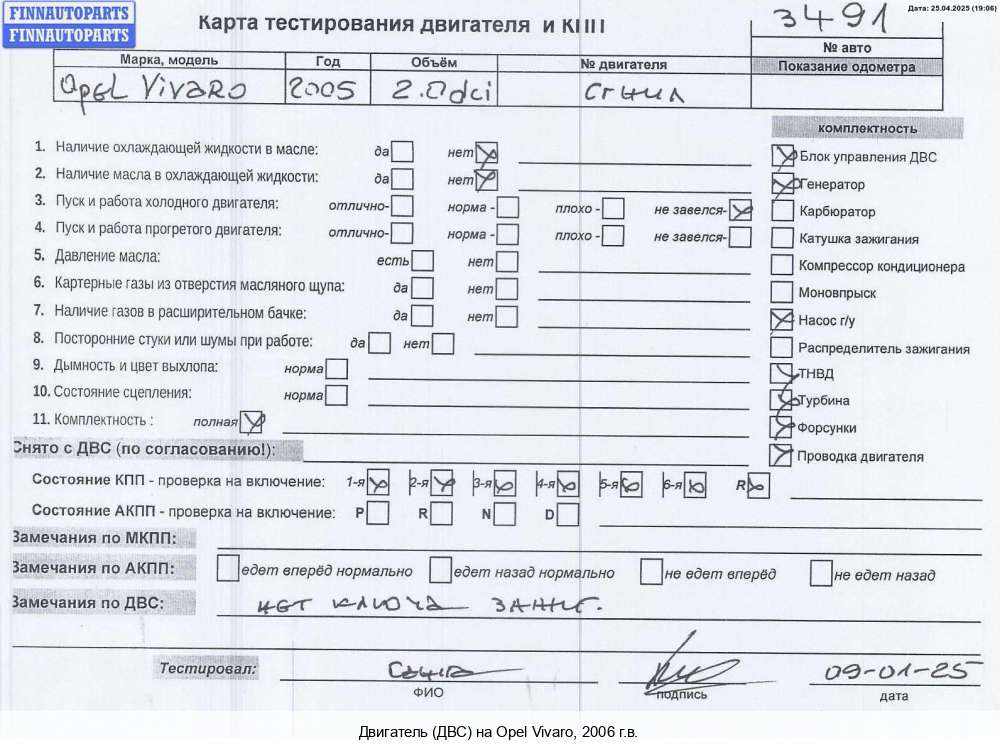 FINNAUTOPARTS
FINNAUTOPARTS
Карта тестирования двигателя и КПП
3491
Дата: 25.04.2025 (19:06)
№ авто
Марка, модель Год Объём № двигателя Показание одометра
Opel Vivaro 2005 2.0dci сгнил
комплектность
1. Наличие охлаждающей жидкости в масле: да нет
Блок управления ДВС
2. Наличие масла в охлаждающей жидкости: да нет
Генератор
3. Пуск и работа холодного двигателя: отлично- норма - плохо - не завелся-
Карбюратор
4. Пуск и работа прогретого двигателя: отлично- норма - плохо - не завелся-
Катушка зажигания
5. Давление масла: есть нет
Компрессор кондиционера
6. Картерные газы из отверстия масляного щупа: да нет
Моновпрыск
7. Наличие газов в расширительном бачке: да нет
Насос г/у
8. Посторонние стуки или шумы при работе: да нет
Распределитель зажигания
9. Дымность и цвет выхлопа: норма
ТНВД
10. Состояние сцепления: норма
Турбина
11. Комплектность : полная
Форсунки
Снято с ДВС (по согласованию!):
Проводка двигателя
Состояние КПП - проверка на включение: 1-я 2-я 3-я 4-я 5-я 6-я R
Состояние АКПП - проверка на включение: P R N D
Замечания по МКПП:
Замечания по АКПП: едет вперёд нормально едет назад нормально не едет вперёд не едет назад
Замечания по ДВС: нет ключа зажиг.
Тестировал: 09-01-25
ФИО подпись дата
Двигатель (ДВС) на Opel Vivaro, 2006 г.в.